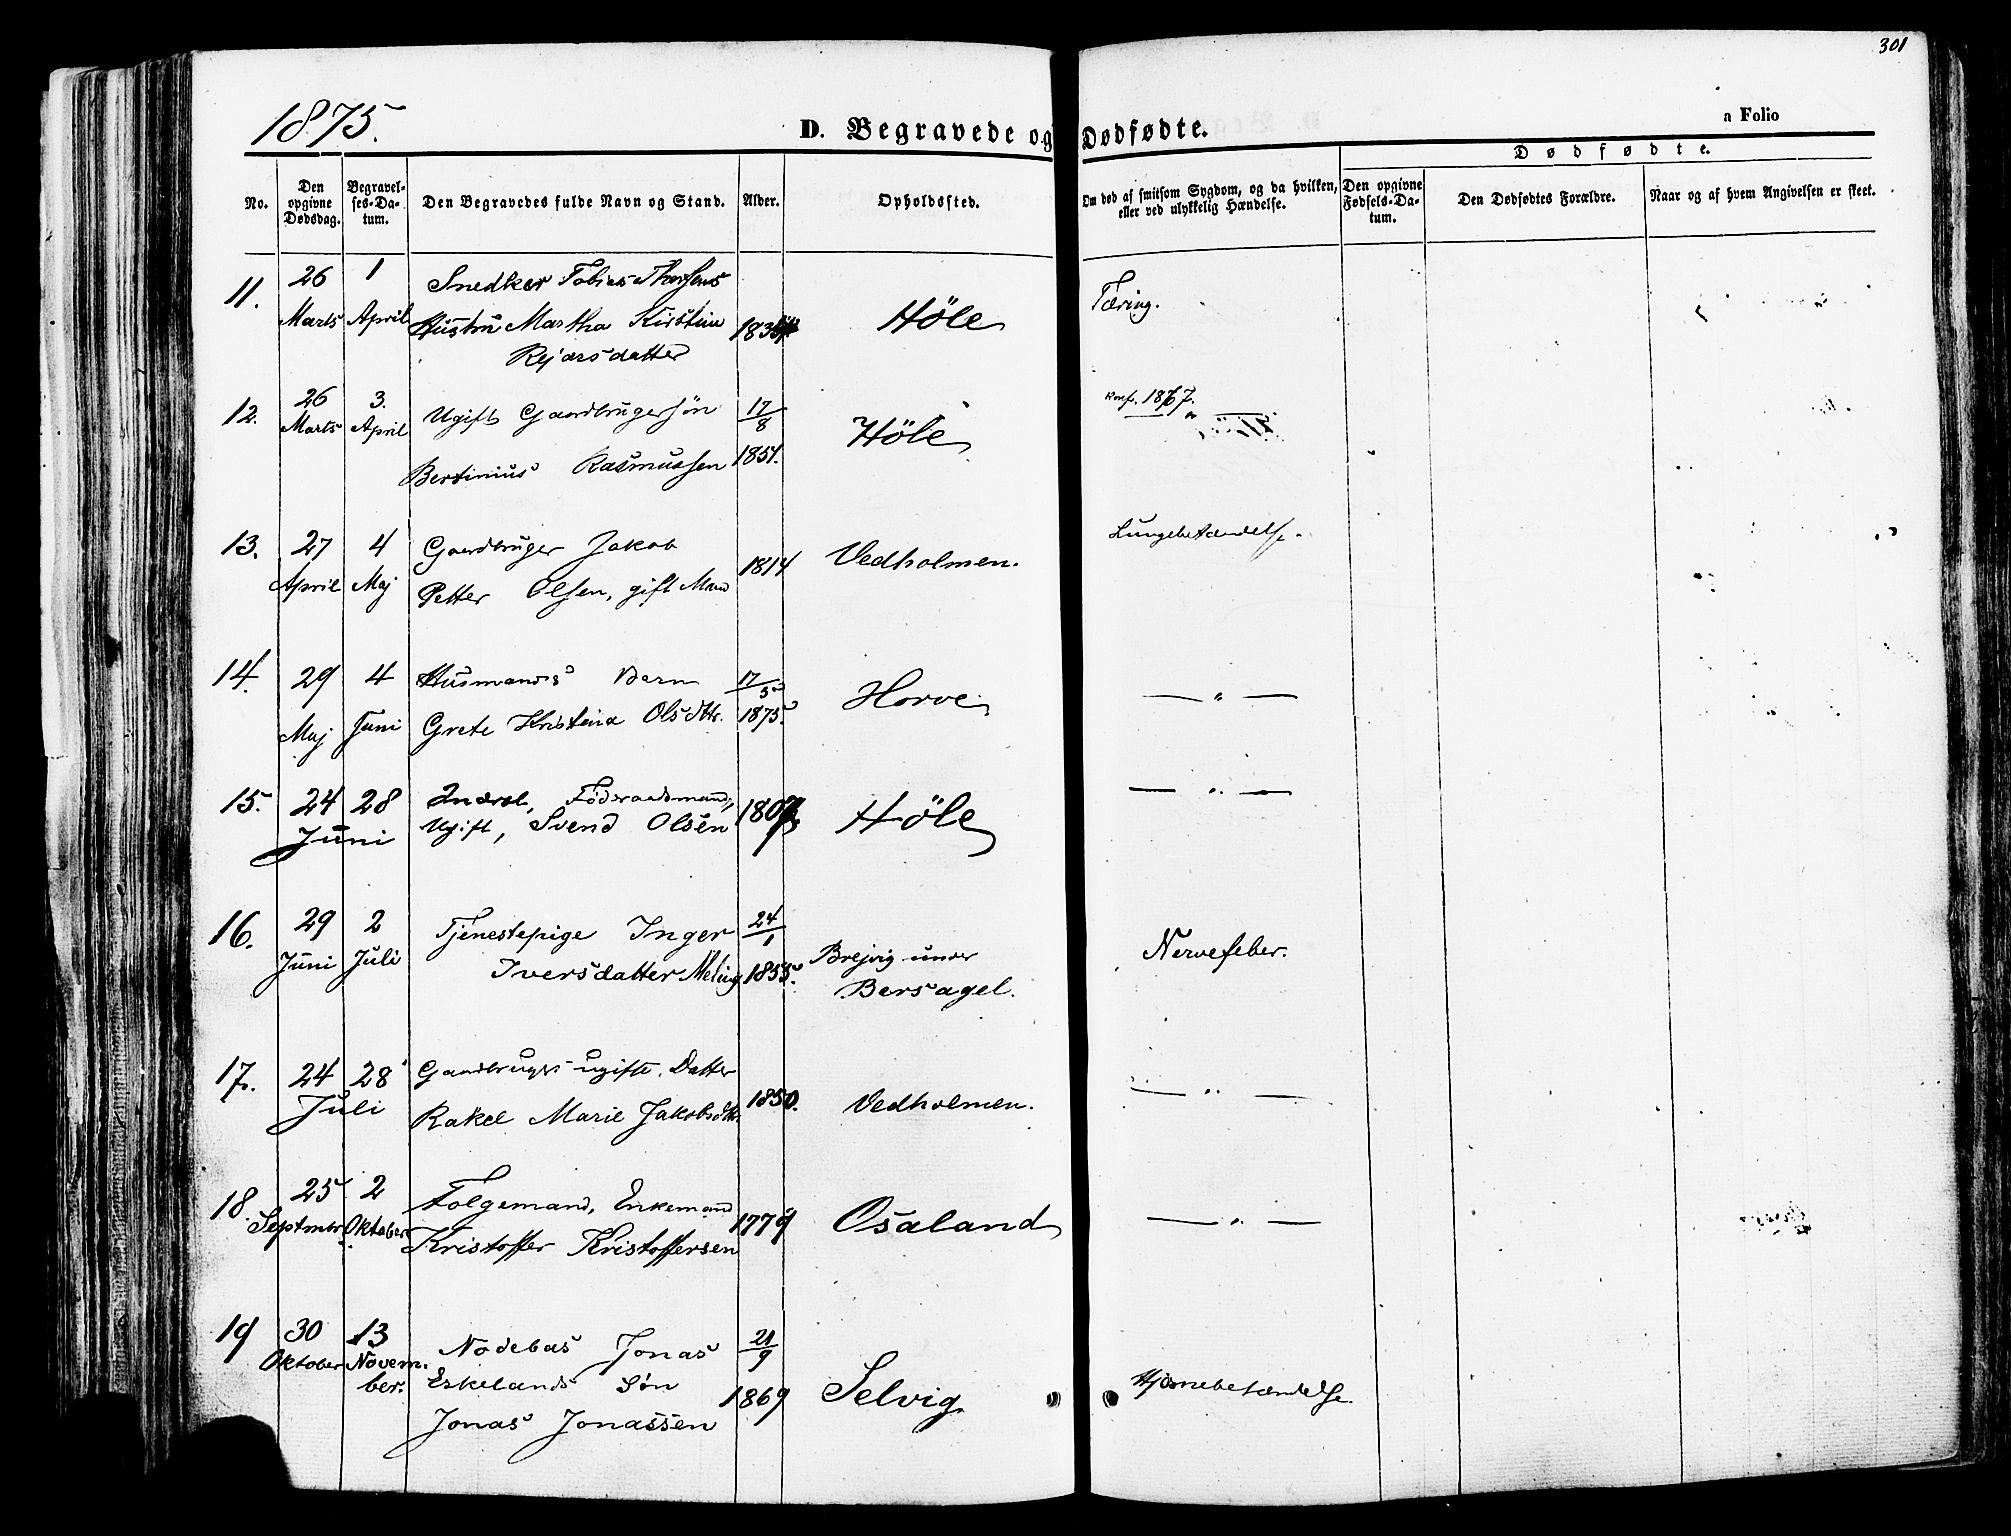 301
1875.
D. Begravede og Dødfødte.
a Folio
Dødfødte.
No.
Den opgivne Dødsdag.
Begravelses-Datum.
Den Begravedes fulde Navn og Stand.
Alder.
Opholdssted.
Om død af smitsom Sygdom, og da hvilken, eller ved ulykkelig Hændelse.
Den opgivne Fødsels-Datum.
Den Dødfødtes Forældre.
Naar og af hvem Angivelsen er skeet.
11. 26 1 Snedker Tobias Thorsens
Marts April Hustru Martha Kirstine Höle Tæring.
Rejarsdatter
12. 26 3. Ugift Gaardbrugersøn 17/8 Konf. 1867.
Marts April Bertinius Rasmussen 1851. Höle
13. 27 4 Gaardbruger Jakob 1814 Vedholmen. Lungebetændelse.
April Maj Petter Olsen, gift Mand
14. 29 4 Husmands Barn 17/5 Horve — " —
Maj Juni Grete Kristina Olsdttr. 1875.
15. 24 28 Inderst, Föderaadsmand, Höle — " —
Juni Ugift, Svend Olsen
16. 29 2 Tjenestepige Inger 24/1 Brejvig under Nervefeber.
Juni Juli Iversdatter Meling 1855. Bersagel.
17. 24 28 Gaardbrugers ugifte Datter 1850. Vedholmen. — " —
Juli Rakel Marie Jakobsdttr.
18 25 2 Folgemand, Enkemand 1779 Osaland — " —
Septmbr Oktober Kristoffer Kristoffersen
19 30 13 Nodebas Jonas 21/9 Selvig Hjernebetændelse.
Oktober November. Eskelands Søn 1869
Jonas Jonassen